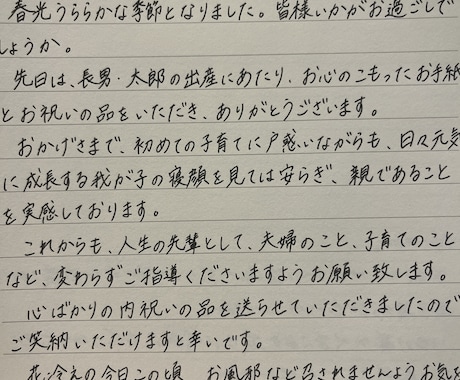 春光うららかな季節となりました。皆様いかがお過ごしで
しょうか。
先日は、長男・太郎の出産にあたり、お心のこもったお手紙
とお祝いの品をいただき、ありがとうございます。
おかげさまで、初めての子育てに戸惑いながらも、日々元気
に成長する我が子の寝顔を見ては安らぎ、親であること
を実感しております。
これからも、人生の先輩として、夫婦のこと、子育てのこと
など、変わらずご指導くださいますようお願い致します。
心ばかりの内祝いの品を送らせていただきましたので
ご笑納いただけますと幸いです。
花冷えの今日この頃、お風邪など召されませんようお気を